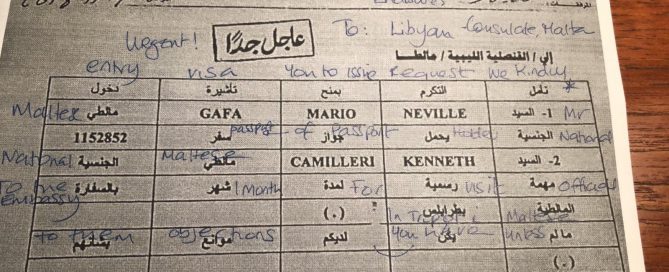 Urgent!
عاجل جدًا
To: Libyan Consulate, Malta
إلى / القنصلية الليبية / مالطا
entry visa You to Issue Request We Kindly
* نأمل التكرم بمنح تأشيرة دخول
Maltese Mr
1- السيد NEVILLE MARIO GAFA مالطي
passport of Passport National
الجنسية يحمل جواز سفر 1152852
National Maltese
2- السيد KENNETH CAMILLERI مالطي الجنسية
To the 1 Month For visit Official
مهمة رسمية لمدة شهر بالسفارة
embassy In Tripoli Maltese
المالطية بطرابلس (.)
to them objections you have unless
مالم يكن لديكم موانع بشأنهم
(.)